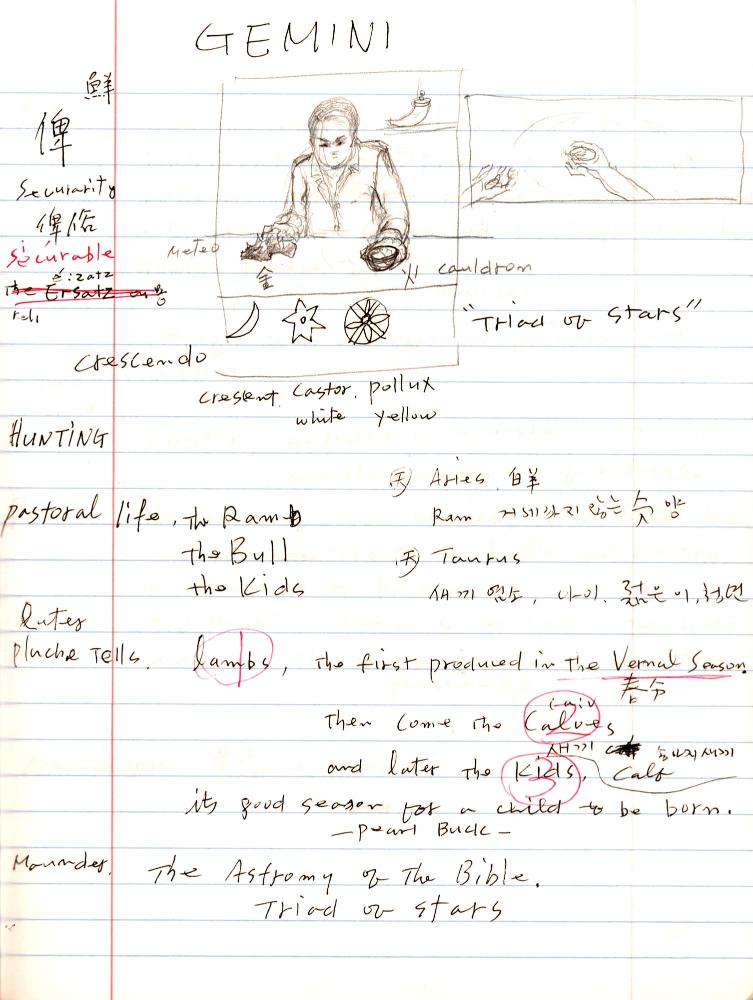 GEMINI
鮮
俾
Securarity
俾俗
securable
Ersatz
Meteo
金
火 cauldron
"Triad of stars"
crescendo
crescent Castor. pollux
white yellow
HUNTING
Aries
pastoral life, the Ram
Ram 거세하지 않는 숫 양
the Bull
Taurus
the Kids
새끼 염소, 아이. 젊은이,
later
pluche Tells. lambs, the first produced in the Vernal Season.
春分
then come the Calves
새끼 송아지새끼
and later the Kids, Calf
its good season for a child to be born.
- pearl Buck -
Maunder. The Astromy of The Bible.
Triad of stars